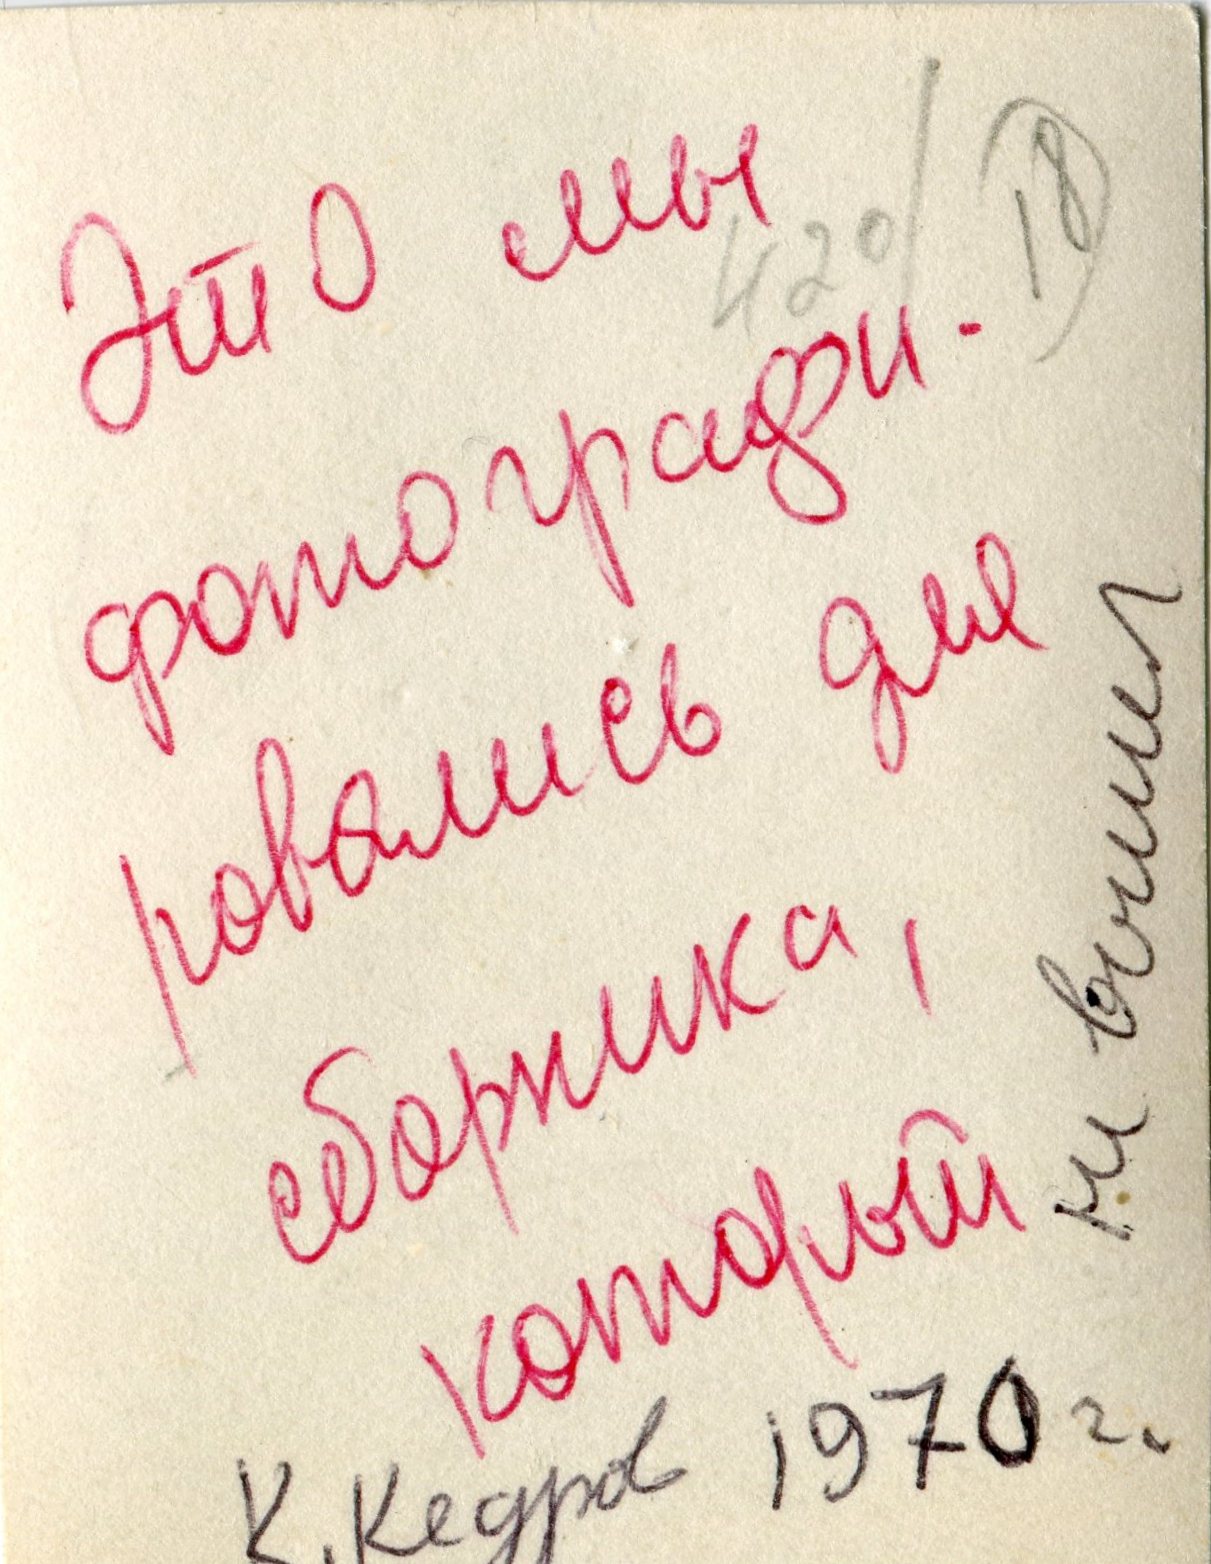 Это мы
420/ 18)
фотографи-
ровались для
сборника,
который
не вышел
К. Кедров 1970 г.